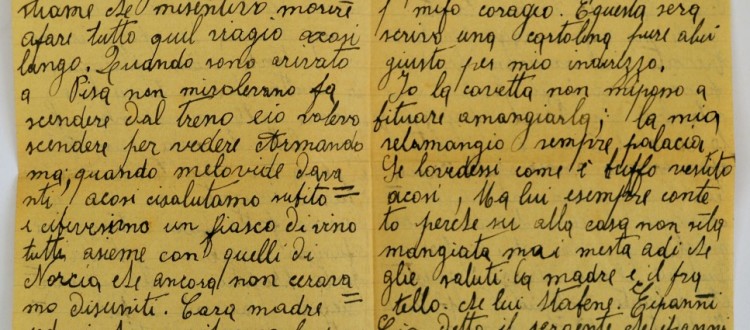 stiame che misentivo morire
afare tutto quil viagio acosi
lungo. Quando sono arivato
a Pisa non misolevano fa
scendere dal treno e io volevo
scendere per vedere Armando
ma, quando melovide dava
nti, acosi cisalutamo subito=
i cibevessimo un fiasco di vino
tutti asieme con quelli di
Norcia che ancora non cerava
mo disuniti. Cara madre=
mifo coragio. E questa sera
scrivo una cartolina pure alui
giusto per mio indirizzo.
Io la cavetta non mipono a
fituare amangiarla; la mia
selamangio sempre palacia
Se lovedessi come è buffo vestito
acosi, Ma lui esempre conte
to perche su alla casa non sila
mangiata mai mesta adi che
glie saluti la madre e il fra
tello. che lui stabene. Eipanni
detto il sergente che ipanni